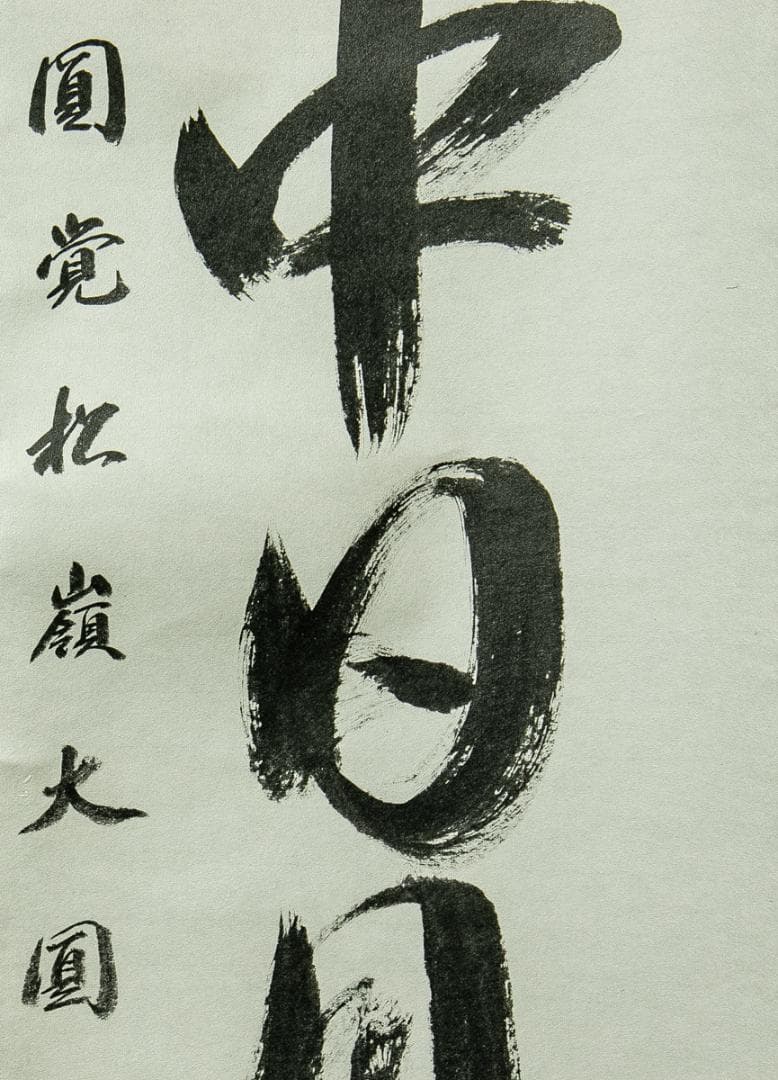 中日月
圓覚松嶺大圓